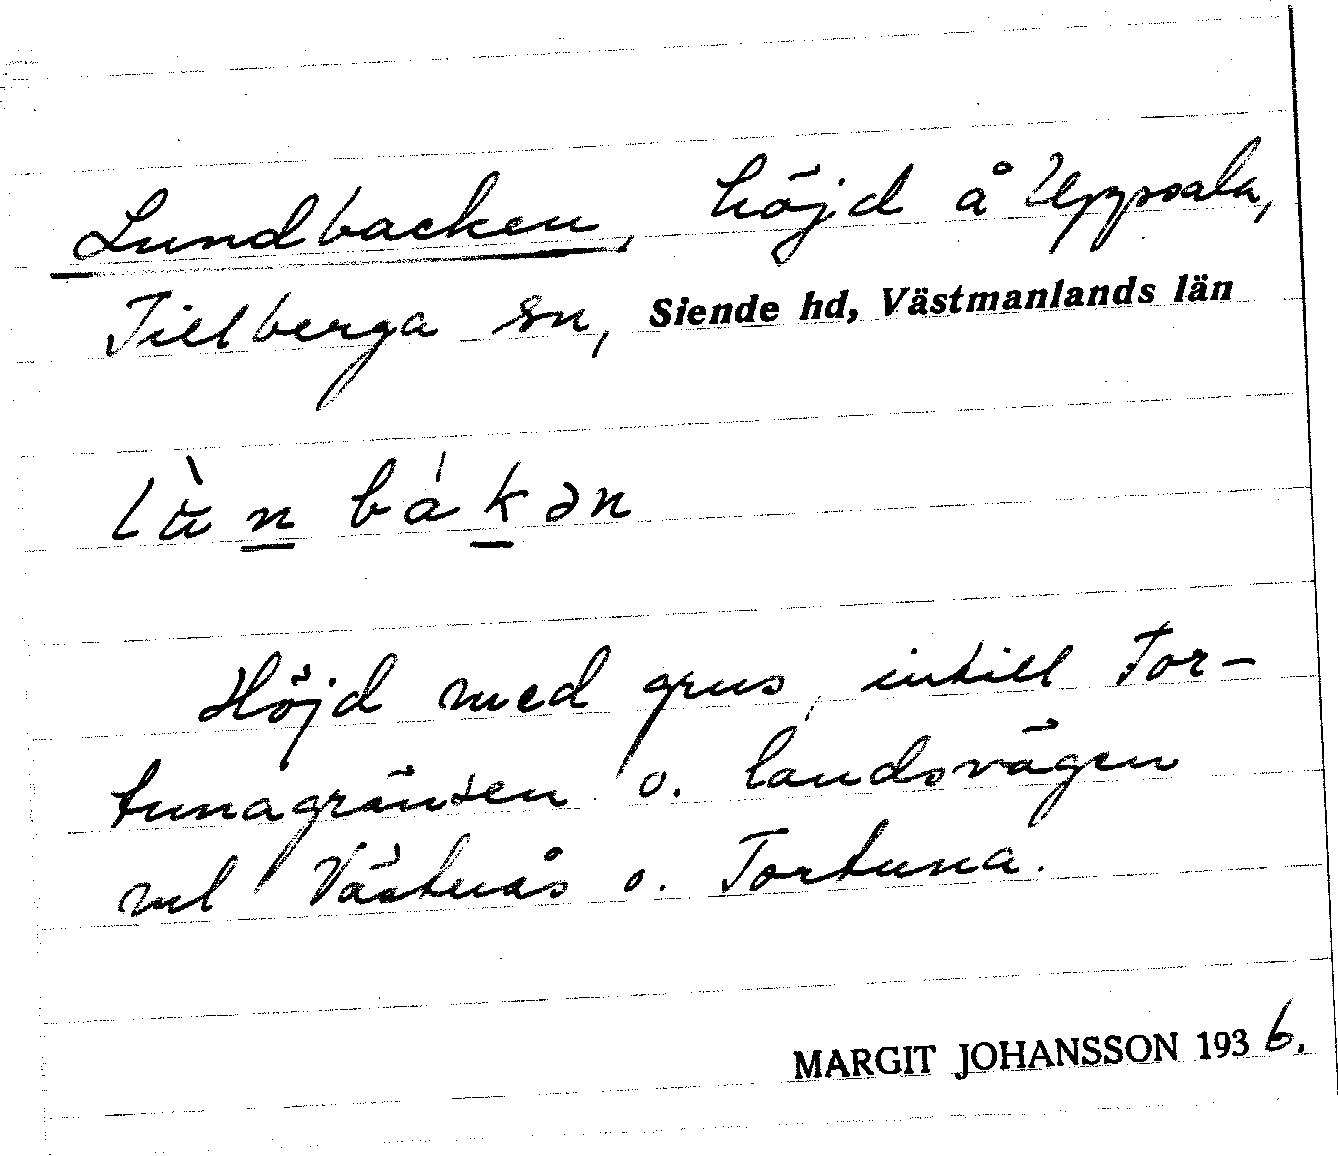 Lundbacken, höjd å Uppsala,
Tillberga sn, Siende hd, Västmanlands län
lὰn bákən
Höjd med grus, intill Tor-
tunagränsen o. landsvägen
ml Västerås o. Tortuna.
MARGIT JOHANSSON 1936.